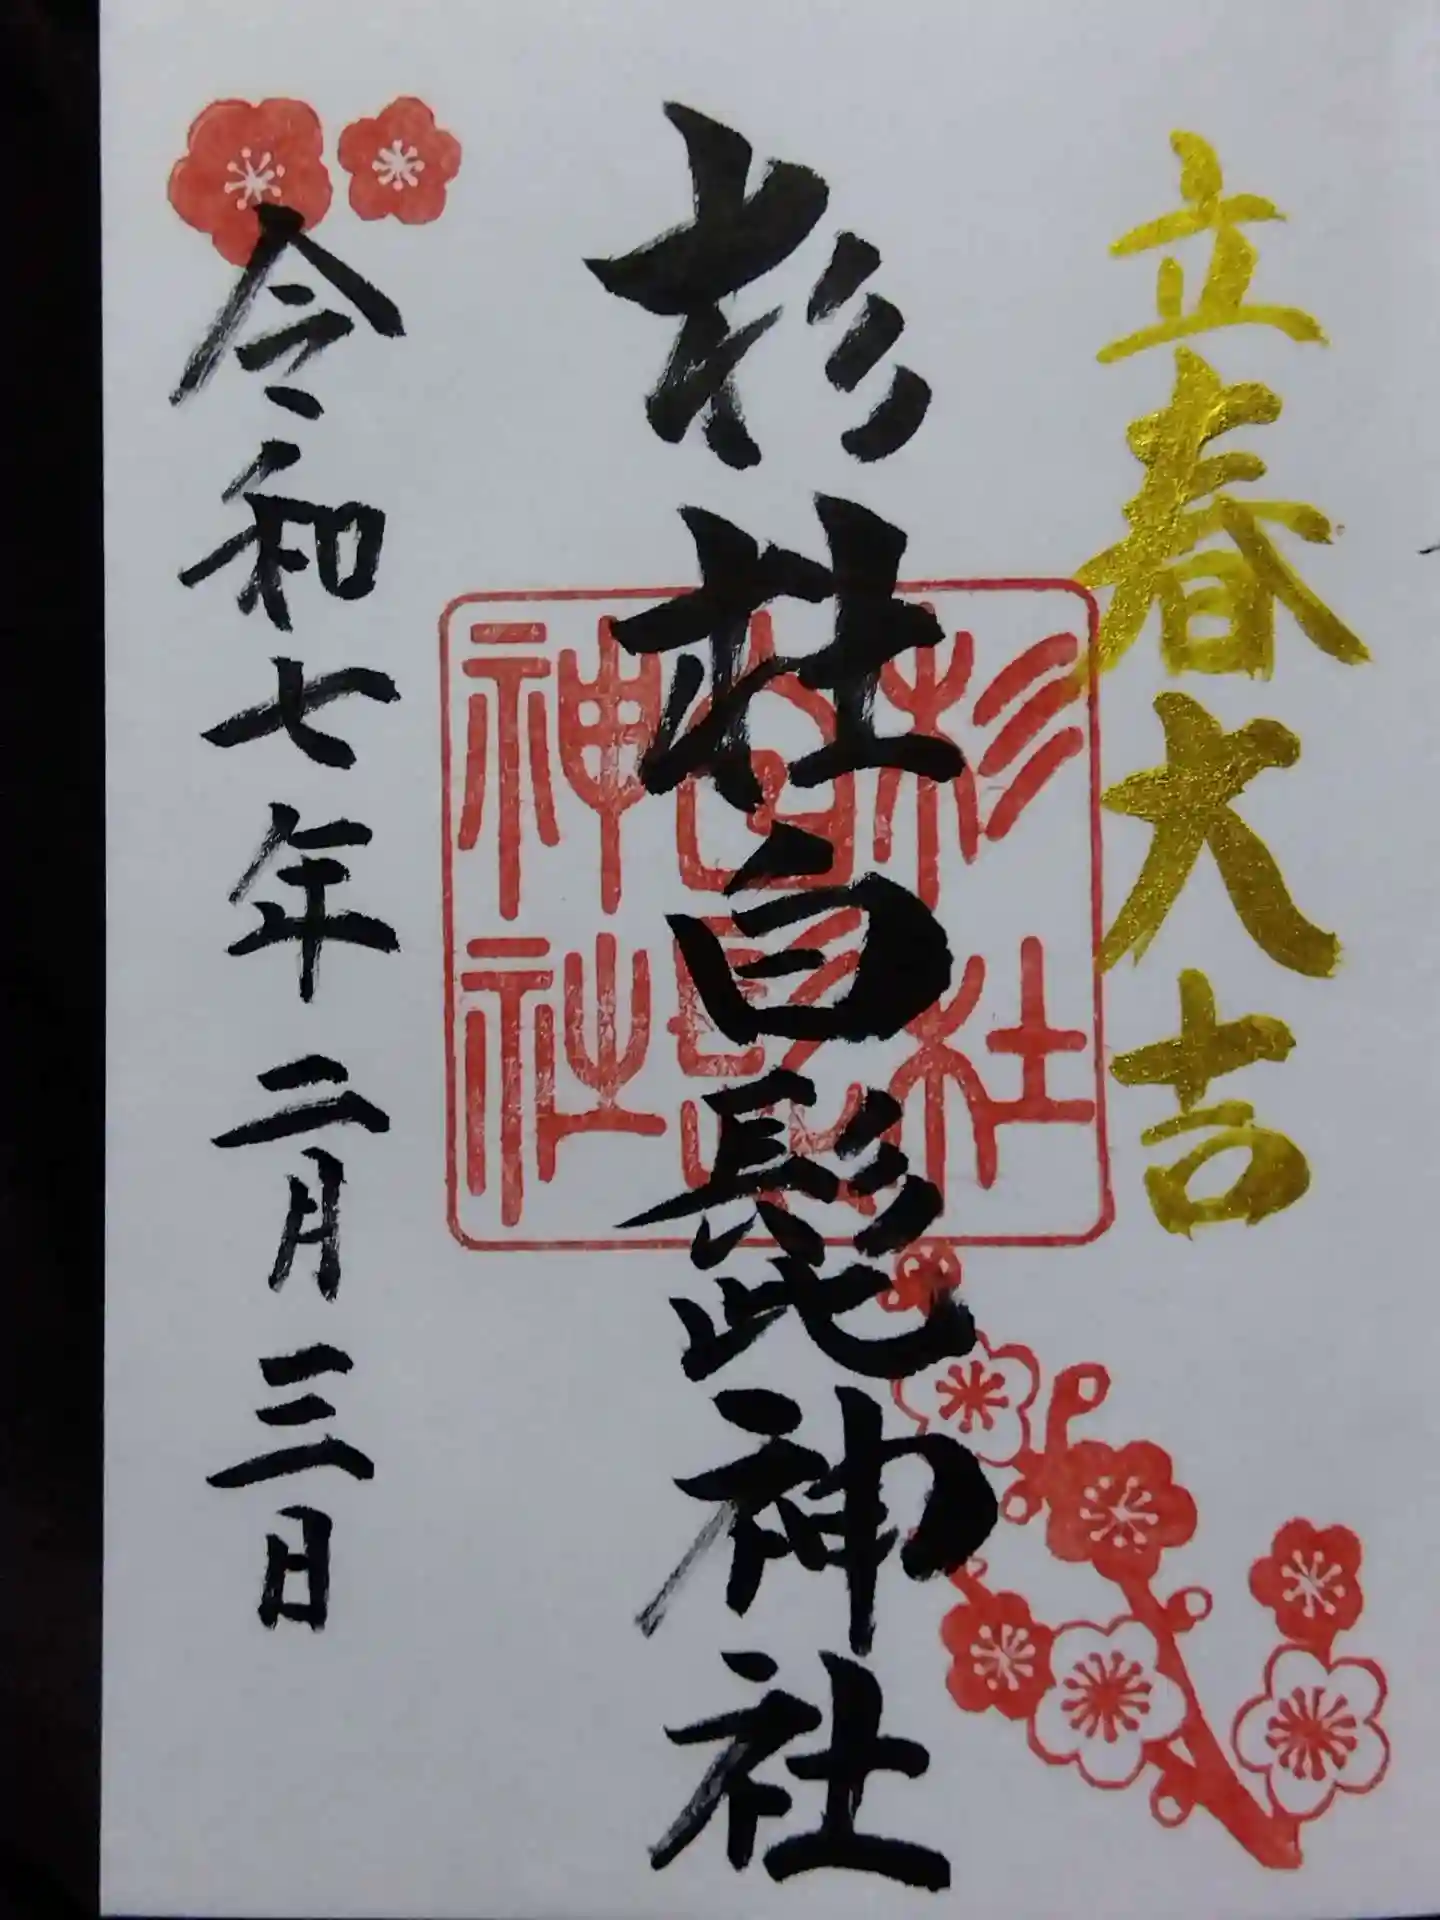 立春大吉
杉杜白髭神社
杉杜
白髭
神社
令和七年二月三日